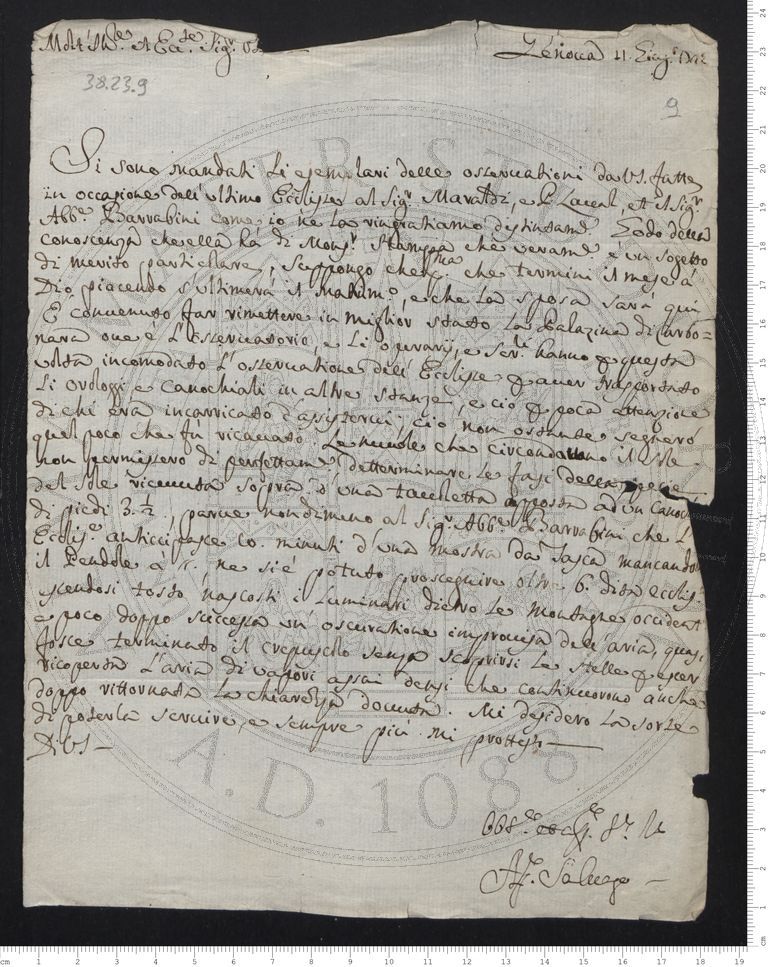 Molt' Ill.re et Ecc.te Sig.r
Genova 11 Giug.o
38.23.9
9
Si sono mandati li esemplari delle osservationi da VS. fatte
in occasione dell'ultimo Ecclisse al Sig.r Maraldi, e P. Laval, et il Sig.r
Abb.e Barrabini come io ne la ringratiamo distintam.e Godo della
conoscenza che ella ha di Mons.r Stampa che veram.e è un sogetto
di merito particolare, suppongo che che termini il mese à
Dio piacendo s'ultimerà il e che la sposa sarà quà
È convenuto far rimettere in miglior stato la Palazina di Carbo=
nara ove è l'osservatorio, e li operarij, e hanno p questa
volta incomodato l'osservatione dell'Ecclisse p aver trasportato
li orologgi e canochiali in altre stanze, e ciò p poca attenzione
di chi era incarricato d'assisterci; ciò non ostante segnerò
quel poco che fù ricavato. Le nuvole che circondavano il Sole
non permisero di perfettam.e determinare le fasi della
del Sole ricevuta sopra d'una tavoletta apposta ad un canoc
di piedi 3. ½, parve nondimeno al Sig.r Abb.e Barrabini che l'
Eccliss.e anticcipasse 10. minuti d'una mostra da Tasca mancando
il Pendolo à ne si è potuto prosseguire oltre 6. dita eccliss.
essendosi tosto nascosti i Luminari dietro le montagne occident
e poco doppo successa un'oscuratione improvisa dell'aria, quasi
fosse terminato il crepuscolo senza scoprirsi le stelle p esser
ricoperta l'aria di vapori assai densi che continuorono anche
doppo rittornata la chiarezza dovuta. Mi desidero la sorte
di poterla servire, e sempre più mi prottesto
D. VS
Salvago
A.D. 1088